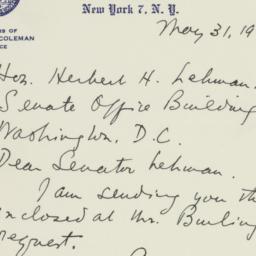 New York 7, N.Y.
RS OF
COLEMAN
CE
May 31, 19
Hon. Herbert H. Lehman.
Senate Office Building
Washington, D.C.
Dear Senator Lehman.
I am sending you th
enclosed at Mr. Burling
request.